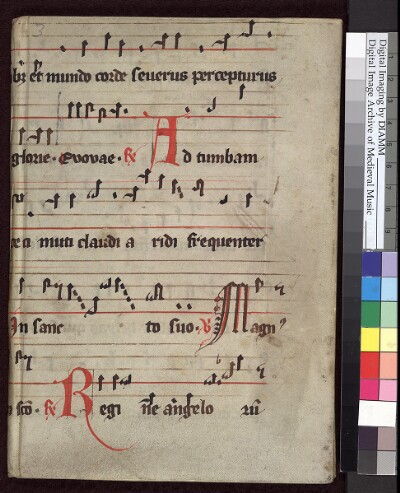 et mundo corde severus percepturus
glorie. Evovae. Ad tumbam
muti claudi a ridi frequenter
In sanc to suo. Magn
Regi ne angelo rū
Digital Imaging by DIAMM
Digital Image Archive of Medieval Music